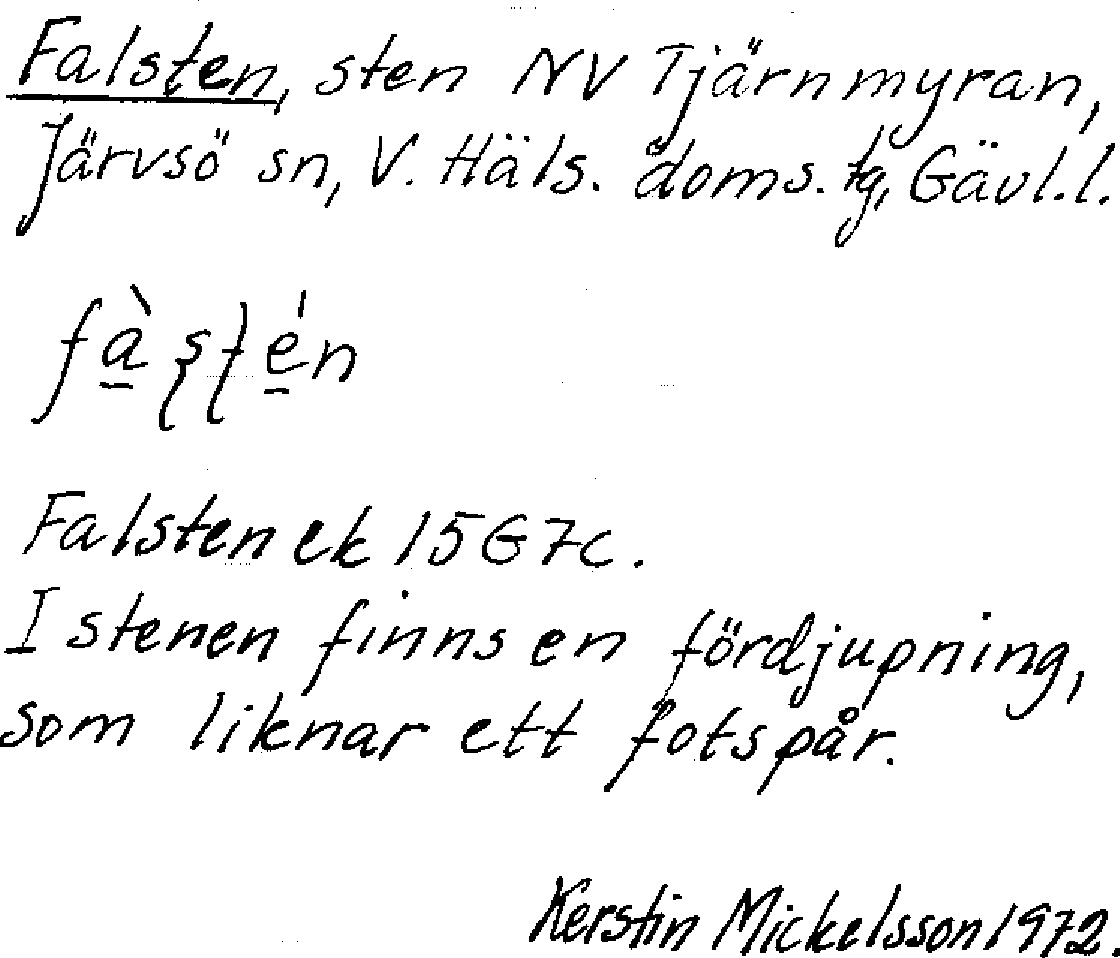 Falsten, sten NV Tjärnmyran,
Järvsö sn, V. Häls. doms. tg, Gävl.l.
fàstén
Falsten ek 15G7c.
I stenen finns en fördjupning,
som liknar ett fotspår.
Kerstin Mickelsson 1972.